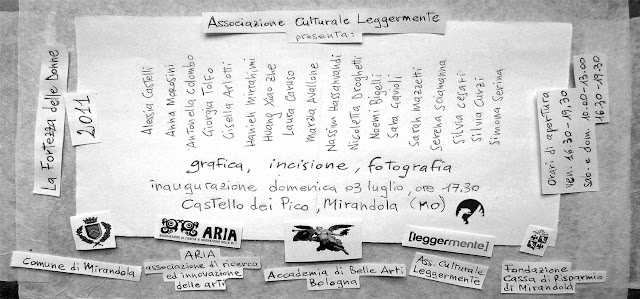 Associazione Culturale Leggermente
presenta:
La Fortezza delle Donne
2011
Alessia Castelli
Anna Morosini
Antonella Colombo
Giorgia Tolfo
Gisella Ariotti
Hanieh Mirrahimi
Huang Xiao Zhe
Laura Caruso
Marzia Avallone
Nassim Hassanvandi
Nicoletta Droghetti
Noemi Bigelli
Sara Gavioli
Sarah Mazzetti
Serena Sciamanna
Silvia Cesari
Silvia Curzi
Simona Serina
Orari di apertura
ven. 16.30-19.30
sab. e dom. 10.00-13.00
16.30-19.30
grafica, incisione, fotografia
inaugurazione domenica 03 luglio, ore 17.30
Castello dei Pico, Mirandola (MO)
Comune di Mirandola
ARIA
ARIA
associazione di ricerca
ed innovazione
delle arti
Accademia di Belle Arti
Bologna
[leggermente]
Ass. Culturale
Leggermente
Fondazione
Cassa di Risparmio
di Mirandola